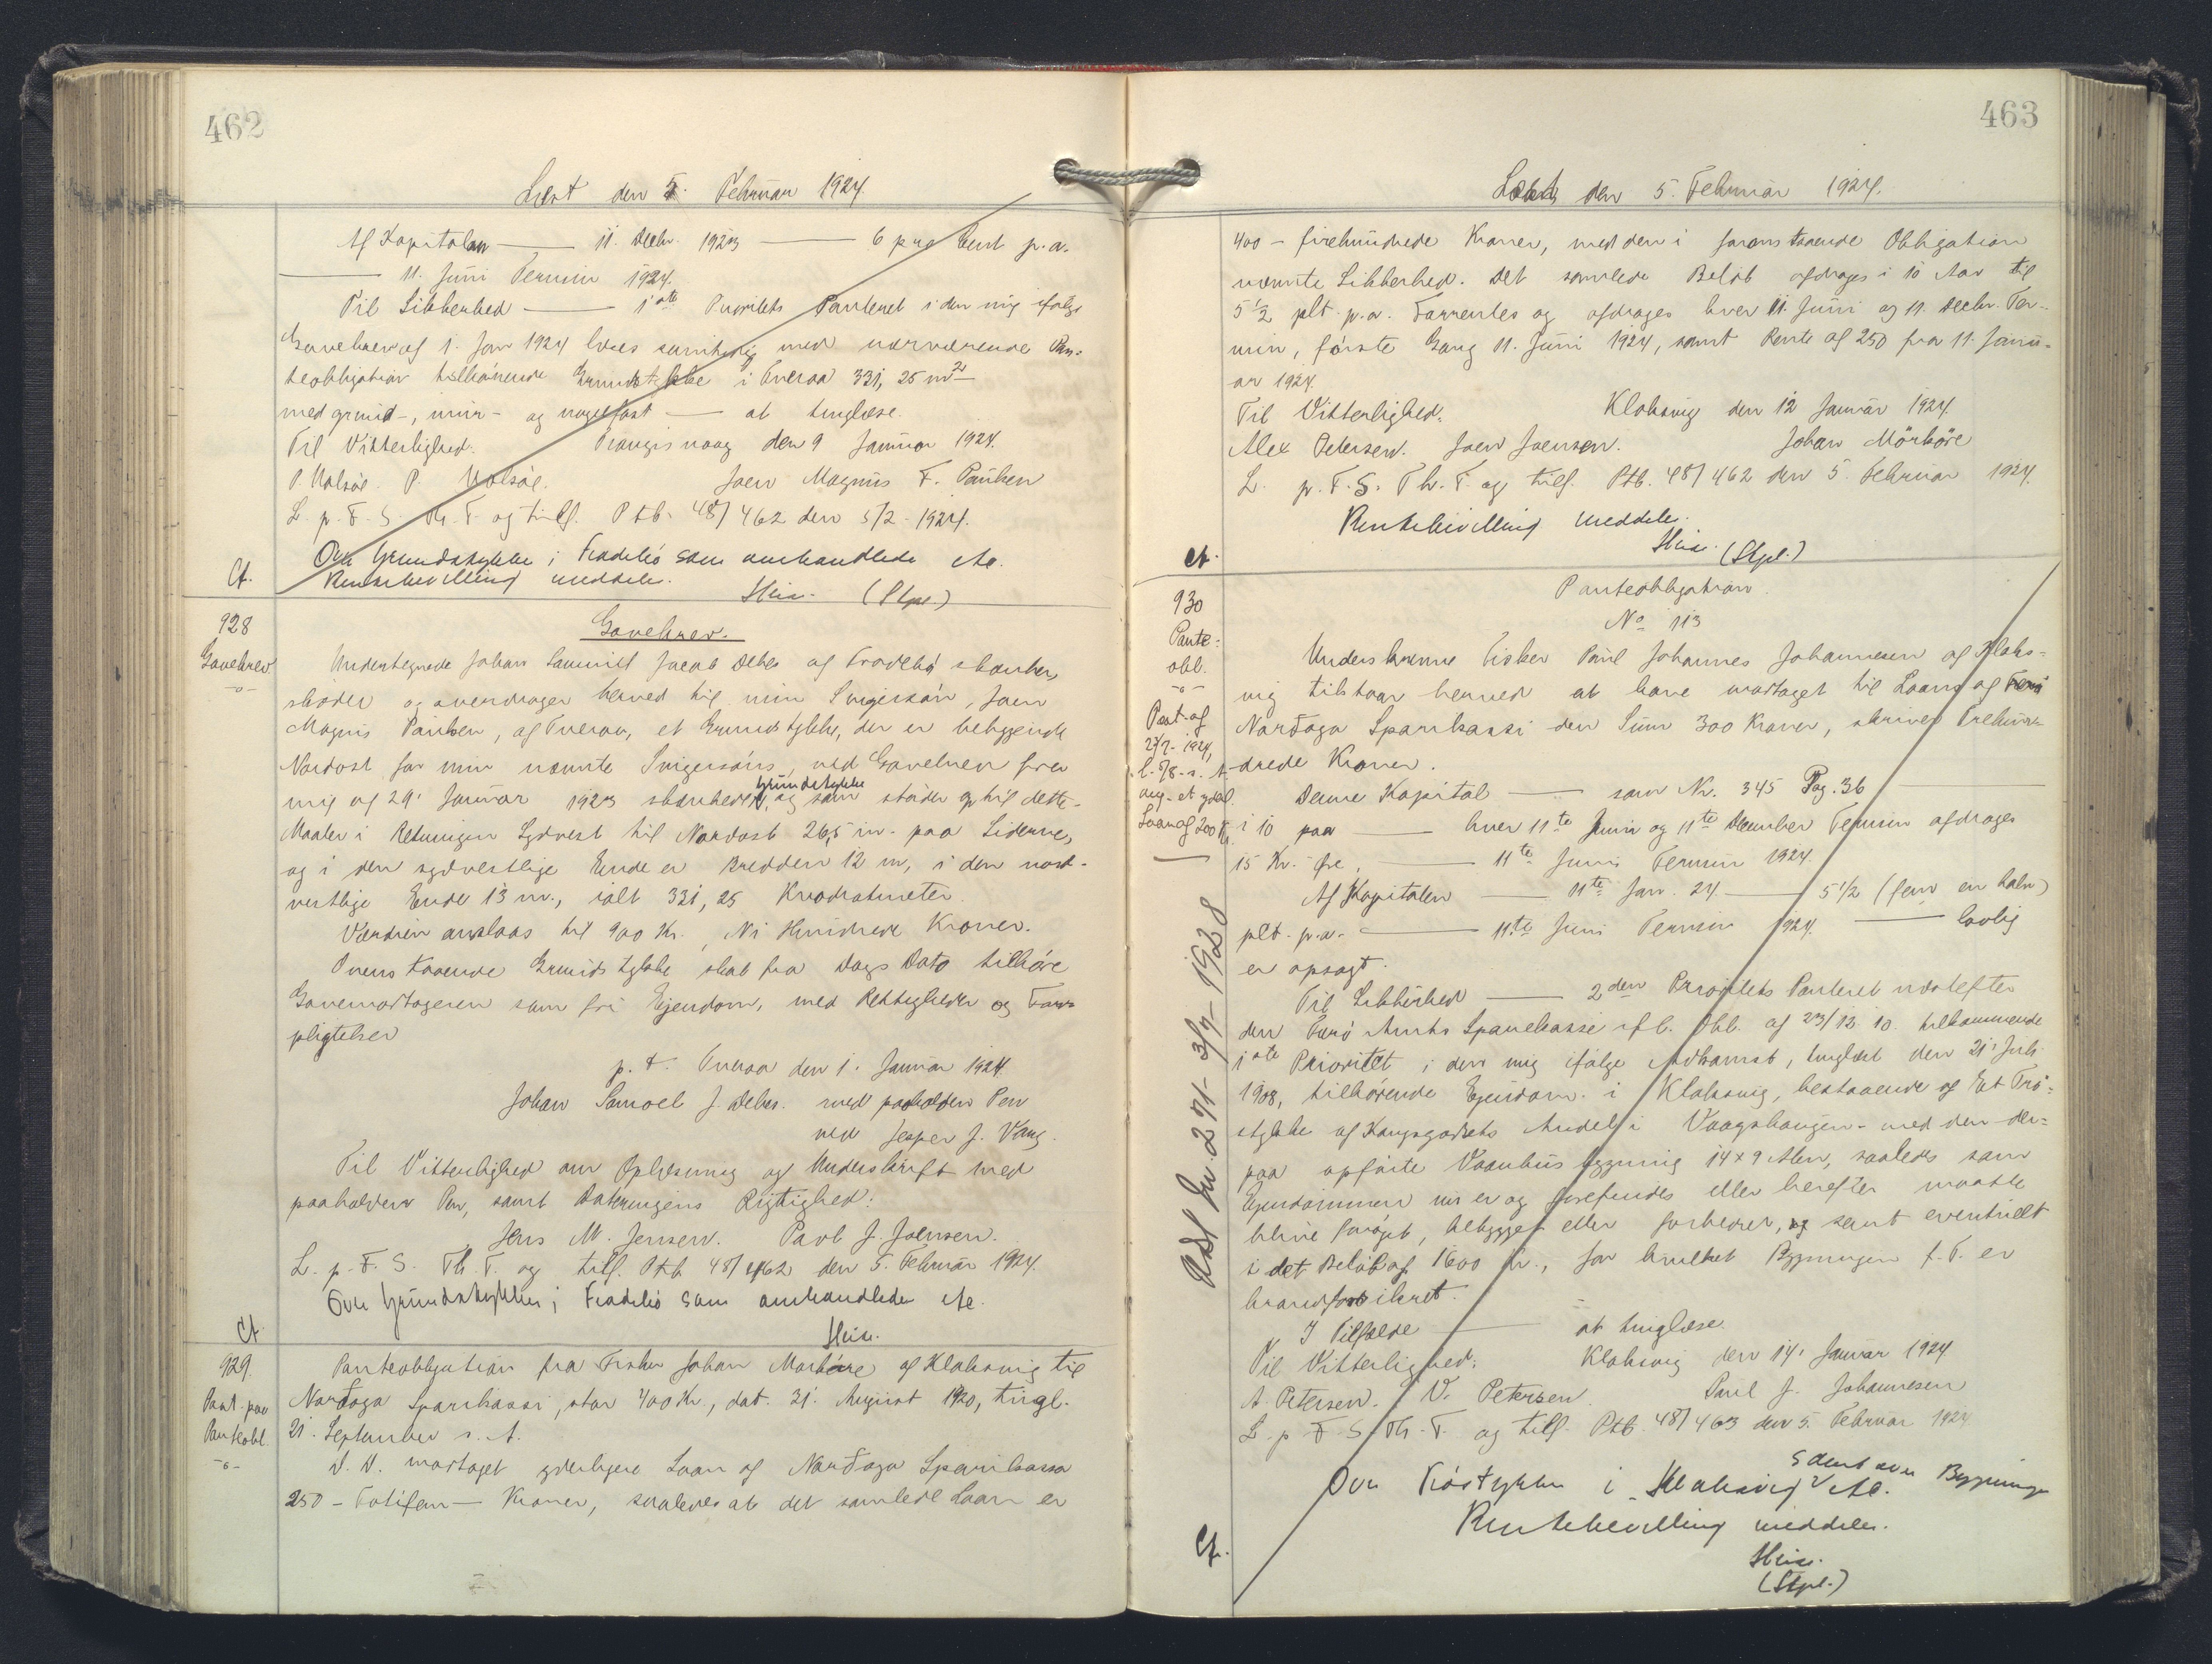 462
Læst den 5. Februar 1924.
Af Kapitalen — 11. Decbr. 1923 — 6 pro Cent p.a.
— 11. Juni Termin 1924.
Til Sikkerhed — 1ste Prioritets Panteret i den mig ifølge
Gavebrev af 1. Jan 1924 læses samtidig med nærværende Pan-
teobligation tilhørende Grundstykke i Tveraa 331,25 m2 —
med grund-, mur- og nagelfast — at tinglæse.
Til Vitterlighed. Trangisvaag den 9 Januar 1924.
P. Holsöe. P. Holsöe. Joen Magnus F. Paulsen
L. p. F. S. Th. T. og tilf. Ptb. 48/462 den 5/2- 1924.
Ovn Grundstykke i Frodebö som omhandlede Ae.
Ct. Rentebevilling meddeles.
Heise. (Stpl.)
928
Gavebrev
-o-
Gavebrev.
Undertegnede Johan Samuel Jacob Debes af Frodebö skænker,
skøder og overdrager herved til min Svigersön, Joen
Magnus Paulsen, af Tveraa, et Grundstykke, der er beliggende
Nordost for min nævnte Svigersöns, ved Gavebrev fra
mig af 29. Januar 1923 skænkede Grundstykke, og som støder op til dette.
Maaler i Retningen Sydvest til Nordost 26,5 m. paa Siderne,
og i den sydvestlige Ende er Bredden 12 m, i den nord-
vestlige Ende 13 m., ialt 331,25 Kvadratmeter.
Værdien anslaas til 900 Kr., Ni Hundrede Kroner.
Ovenstaaende Grundstykke skal fra Dags Dato tilhöre
Gavemodtageren som fri Ejendom, med Rettigheder og For-
pligtelser
p. t. Tveraa den 1. Januar 1924.
Johan Samoel J. Debes. med paaholden Pen
ved Jesper J. Vang.
Til Vitterlighed om Oplæsning og Underskrift med
paaholden Pen, samt Dateringens Rigtighed:
Jens M. Jensen. Pavl J. Joensen.
L. p. F. S. Th. T. og tilf. Ptb. 48/462 den 5. Februar 1924.
Ovn Grundstykke i Frodebö som omhandlede Ae.
Ct. Heise.
929.
Paat. paa
Panteobl.
-o-
Panteobligation fra Fisker Johan Morköre af Klaksvig til
Norðoya Sparikassi, stor 400 Kr., dat. 31. August 1920, tingl.
21. September s. A.
D. D. modtaget yderligere Laan af Norðoya Sparikassa
250 — Totifem — Kroner, saaledes at det samlede Laan er
463
Læst den 5. Februar 1924.
400 — firehundrede Kroner, med den i foranstaaende Obligation
nævnte Sikkerhed. Det samlede Beløb afdrages i 10 Aar til
5 1/2 pCt. p.a. Forrentes og afdrages hver 11. Juni og 11. Decbr. Ter-
min, förste Gang 11. Juni 1924, samt Rente af 250 fra 11. Janu-
ar 1924.
Til Vitterlighed. Klaksvig den 12 Januar 1924.
Alex Petersen. Joen Joensen. Johan Mörköre
L. p. F. S. Th. T. og tilf. Ptb. 48/462 den 5. Februar 1924.
Rentebevilling meddeles.
Ct. Heise. (Stpl.)
930
Pante-
obl.
-o-
Paat. af
Laan af 200 Kr.
Panteobligation.
No 113
Underskrevne Fisker Poul Johannes Johannesen af Klaks-
vig tilstaar herved at have modtaget til Laans af
Norðoya Sparikassi den Sum 300 Kroner, skriver Trehun-
drede Kroner.
Denne Kapital — som Nr. 345 Pag. 36 —
i 10 paa — hver 11te Juni og 11te December Termin afdrages
15 Kr. Öre, — 11te Juni Termin 1924.
Af Kapitalen — 11te Jan. 24 — 5 1/2 (fem en halv)
pCt. p.a. — 11te Juni Termin 1924. — lovlig
er opsagt.
Til Sikkerhed — 2den Prioritets Panteret næstefter
den Færö Amts Sparekasse ifl. Obl. af 23/12 10. tilkommende
1ste Prioritet i den mig ifølge Adkomst, tinglæst den 21. Juli
1908, tilhörende Ejendom i Klaksvig, bestaaende af Et Trö-
stykke af Kongsgodsets Andel i Vaagshaugen - med den der-
paa opförte Vaanhus bygning 14 x 9 Alen, saaledes som
Ejendommen nu er og forefindes eller herefter maatte
blive forøget, bebygget eller forbedret, og samt eventuelt
i det Beløb af 1600 Kr., for hvilket Bygningen f. T. er
brandforsikret.
I Tilfælde — at tinglæse.
Til Vitterlighed: Klaksvig den 14. Januar 1924
A. Petersen. V. Petersen. Poul J. Johannesen
L. p. F. S. Th. T. og tilf. Ptb. 48/463 den 5. Februar 1924
Ovn Tröstykke i Klaksvig samt ovn Bygning Ae.
Rentebevilling meddeles.
Ct. Heise.
(Stpl.)
Udsl En 271- 3/7- 1928